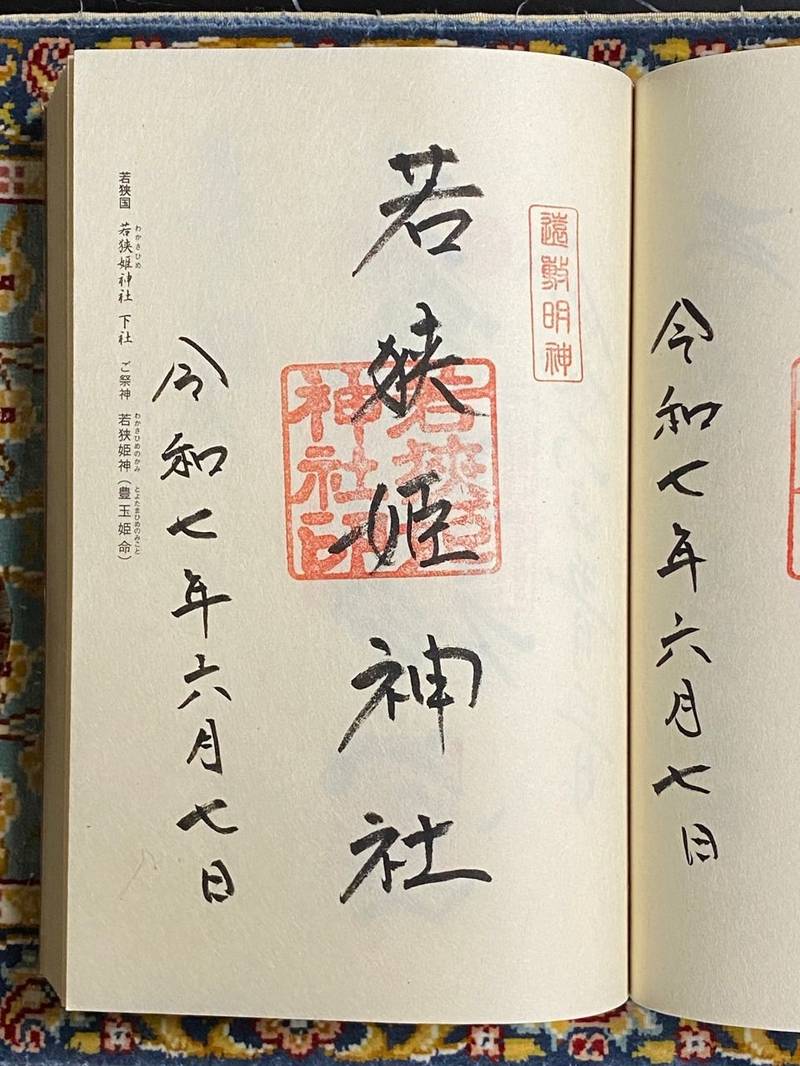 遠敷明神
若狭姫神社
若狭姫
神社印
令和七年六月七日
若狭国 若狭姫神社 下社 ご祭神 若狭姫神（豊玉姫命）
わかさひめ
わかさひめのかみ
とよたまひめのみこと
令和七年六月七日